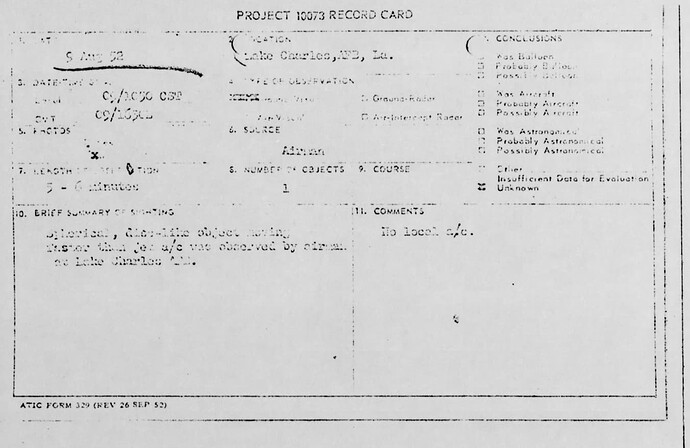 PROJECT 10073 RECORD CARD
9 Aug 52
2. LOCATION
Lake Charles, AFB, La.
CONCLUSIONS
Was Balloon
Probably Balloon
Possibly Balloon
Was Aircraft
Probably Aircraft
Possibly Aircraft
Was Astronomical
Probably Astronomical
Possibly Astronomical
Other
Insufficient Data for Evaluation
Unknown
3. DATE-TIME
Local 09/1050 CST
GMT 09/1650Z
4. TYPE OF OBSERVATION
Ground-Radar
Air-Intercept Radar
5. PHOTOS
6. SOURCE
Airman
7. LENGTH OF
5 - 6 minutes
8. NUMBER OF OBJECTS
1
9. COURSE
10. BRIEF SUMMARY OF SIGHTING
Spherical, disc-like object moving
faster than jet a/c was observed by airman
at Lake Charles AFB.
11. COMMENTS
No local a/c.
ATIC FORM 329 (REV 26 SEP 52)